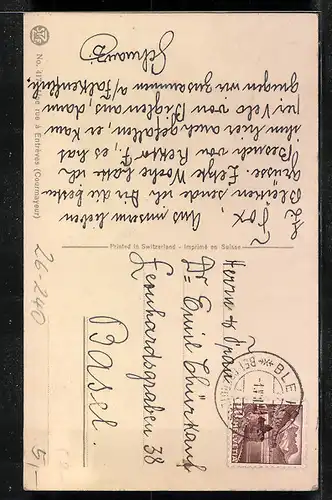 No. 41
rue à Entrèves (Courmayeur)
L. Fox,
Aus unserem lieben
Bleiken sende ich Dir die besten
Grüsse. Letzte Woche hatte ich
Besuch von Rektor F., es hat
ihm hier auch gefallen, er kam
per Velo von Biglen aus, dann
giengen wir zusammen a/Falkenfluh.
Printed in Switzerland - Imprimé en Suisse
Herrn &
Dr. Emil Thürkauf
Leonhardsgraben 38
Basel.
BLEI
HELVETIA
26-240
5,-